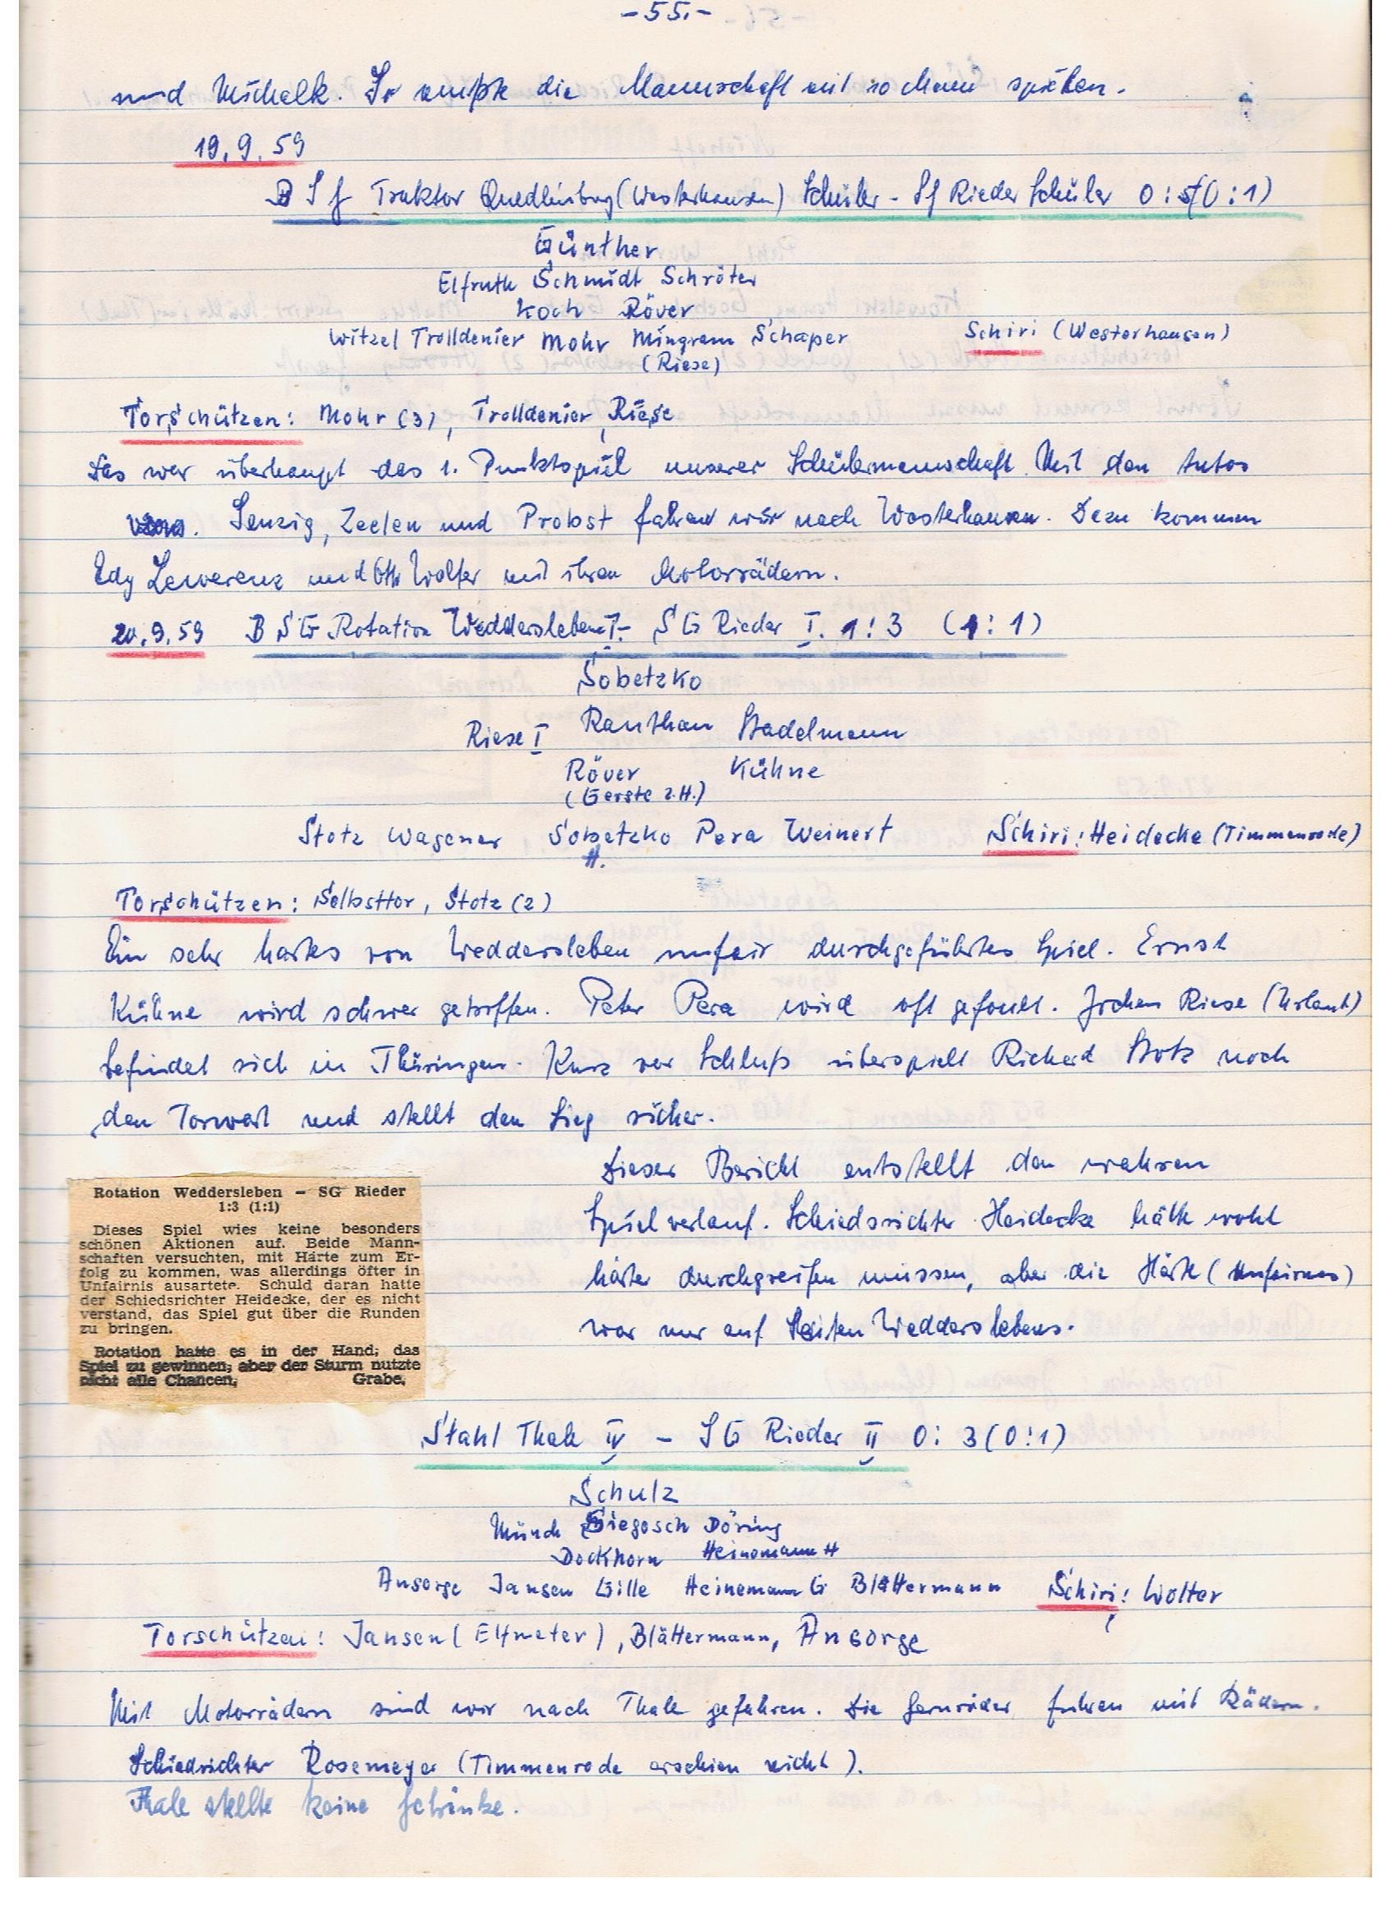 -55.-
und Michalk. So mußte die Mannschaft mit 10 Mann spielen.
19.9.59
BSG Traktor Quedlinburg (Westerhausen) Schüler - SG Rieder Schüler 0:5 (0:1)
Günther
Elfruth Schmidt Schröter
Koch Röver
Witzel Trolldenier Mohr Mingram Schaper
(Riese)
Schiri (Westerhausen)
Torschützen: Mohr (3), Trolldenier, Riese
Das war überhaupt das 1. Punktspiel unserer Schülermannschaft. Mit den Autos
Senzig, Zeelen und Probst fahren wir nach Westerhausen. Dazu kommen
Edy Lewerenz und Otto Wolter mit ihren Motorrädern.
20.9.59 BSG Rotation Weddersleben I. - SG Rieder I. 1:3 (1:1)
Sobetzko
Riese I Ranthan Stadelmann
Röver Kühne
(Gerste 2.H.)
Stotz Wagener Sobetzko Pera Weinert
H.
Schiri: Heidecke (Timmenrode)
Torschützen: Selbsttor, Stotz (2)
Ein sehr hartes von Weddersleben unfair durchgeführtes Spiel. Ernst
Kühne wird schwer getroffen. Peter Pera wird oft gefoult. Jochen Riese (Urlaub)
befindet sich in Thüringen. Kurz vor Schluß überspielt Richard Stotz noch
den Torwart und stellt den Sieg sicher.
Rotation Weddersleben — SG Rieder
1:3 (1:1)
Dieses Spiel wies keine besonders
schönen Aktionen auf. Beide Mann-
schaften versuchten, mit Härte zum Er-
folg zu kommen, was allerdings öfter in
Unfairnis ausartete. Schuld daran hatte
der Schiedsrichter Heidecke, der es nicht
verstand, das Spiel gut über die Runden
zu bringen.
Rotation hatte es in der Hand, das
Spiel zu gewinnen, aber der Sturm nutzte
nicht alle Chancen. Grabe.
Dieser Bericht entstellt den wahren
Spielverlauf. Schiedsrichter Heidecke hätte wohl
härter durchgreifen müssen, aber die Härte (Unfairnes)
war nur auf Seiten Weddersleben.
Stahl Thale IV - SG Rieder II 0:3 (0:1)
Schulz
Münch Siegosch Döring
Dockhorn Heinemann H
Ansorge Jansen Gille Heinemann G Blättermann
Schiri: Wolter
Torschützen: Jansen (Elfmeter), Blättermann, Ansorge
Mit Motorrädern sind wir nach Thale gefahren. Die Gernröder fuhren mit Rädern.
Schiedsrichter Rosemeyer (Timmenrode erschien nicht).
Thale stellte keine Getränke.